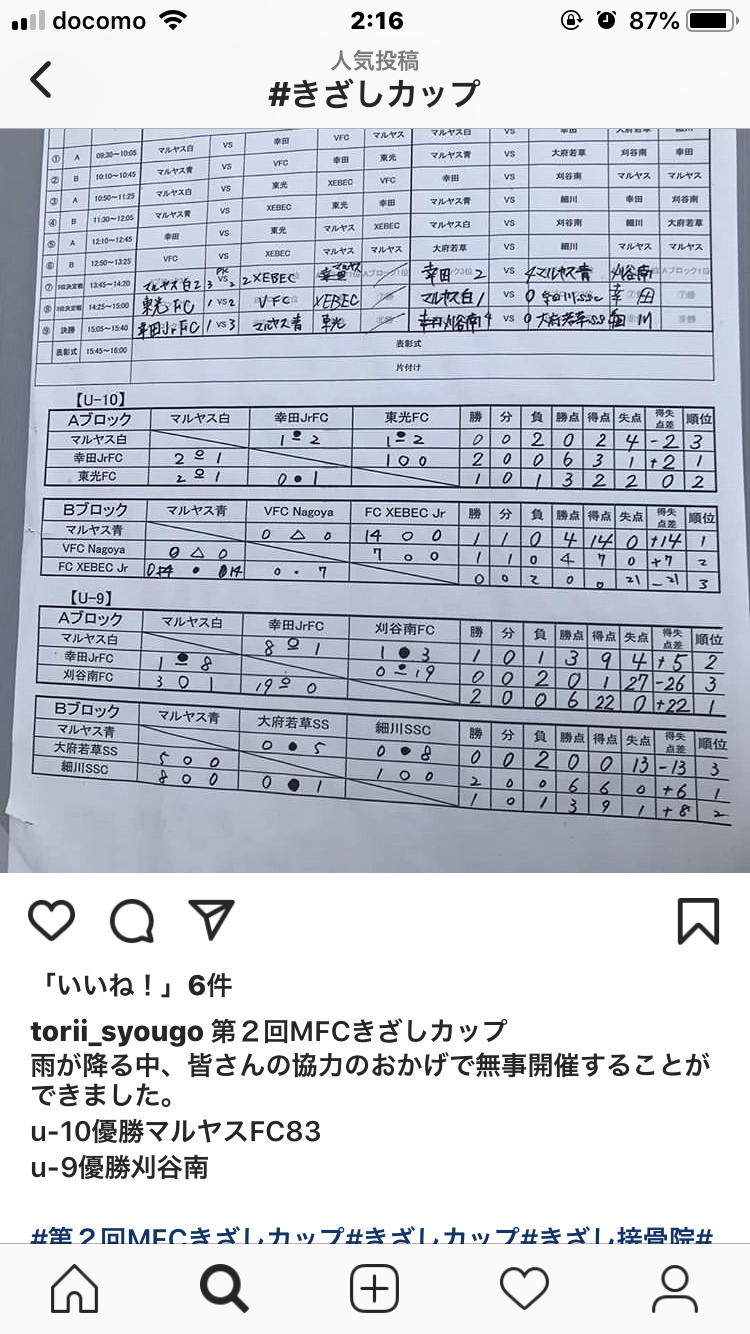 docomo 2:16 87%
人気投稿
#きざしカップ
① A 09:30~10:05 マルヤス白 VS 幸田 VFC マルヤス マルヤス白 VS 幸田 大府若草 細川
② B 10:10~10:45 マルヤス青 VS VFC 幸田 東光 マルヤス青 VS 大府若草 刈谷南 幸田
③ A 10:50~11:25 マルヤス白 VS 東光 XEBEC VFC 幸田 VS 刈谷南 マルヤス マルヤス
④ B 11:30~12:05 マルヤス青 VS XEBEC 東光 幸田 マルヤス青 VS 細川 幸田 刈谷南
⑤ A 12:10~12:45 幸田 VS 東光 マルヤス XEBEC マルヤス白 VS 刈谷南 細川 大府若草
⑥ B 12:50~13:25 VFC VS XEBEC マルヤス マルヤス 大府若草 VS 細川 マルヤス マルヤス
⑦ 5位決定戦 13:45~14:20 マルヤス白 2 3 PK VS 2 2 XEBEC マルヤス 幸田 2 VS 4 マルヤス青 刈谷南
⑧ 3位決定戦 14:25~15:00 東光FC 1 VS 2 VFC XEBEC マルヤス白 1 VS 0 細川SSC 幸田
⑨ 決勝 15:05~15:40 幸田JrFC 1 VS 3 マルヤス青 東光 刈谷南 4 VS 0 大府若草SS 細川
表彰式 15:45~16:00 表彰式
片付け
【U-10】
Aブロック マルヤス白 幸田JrFC 東光FC 勝 分 負 勝点 得点 失点 得失点差 順位
マルヤス白 1 ● 2 1 ● 2 0 0 2 0 2 4 -2 3
幸田JrFC 2 ○ 1 1 ○ 0 2 0 0 6 3 1 +2 1
東光FC 2 ○ 1 0 ● 1 1 0 1 3 2 2 0 2
Bブロック マルヤス青 VFC Nagoya FC XEBEC Jr 勝 分 負 勝点 得点 失点 得失点差 順位
マルヤス青 0 △ 0 14 ○ 0 1 1 0 4 14 0 +14 1
VFC Nagoya 0 △ 0 7 ○ 0 1 1 0 4 7 0 +7 2
FC XEBEC Jr 0 ● 14 0 ● 7 0 0 2 0 0 21 -21 3
【U-9】
Aブロック マルヤス白 幸田JrFC 刈谷南FC 勝 分 負 勝点 得点 失点 得失点差 順位
マルヤス白 8 ○ 1 1 ● 3 1 0 1 3 9 4 +5 2
幸田JrFC 1 ● 8 0 ● 19 0 0 2 0 1 27 -26 3
刈谷南FC 3 ○ 1 19 ○ 0 2 0 0 6 22 0 +22 1
Bブロック マルヤス青 大府若草SS 細川SSC 勝 分 負 勝点 得点 失点 得失点差 順位
マルヤス青 0 ● 5 0 ● 8 0 0 2 0 0 13 -13 3
大府若草SS 5 ○ 0 1 ○ 0 2 0 0 6 6 0 +6 1
細川SSC 8 ○ 0 0 ● 1 1 0 1 3 9 1 +8 2
「いいね！」6件
torii_syougo 第２回MFCきざしカップ
雨が降る中、皆さんの協力のおかげで無事開催することが
できました。
u-10優勝マルヤスFC83
u-9優勝刈谷南
#第２回MFCきざしカップ#きざしカップ#きざし接骨院#